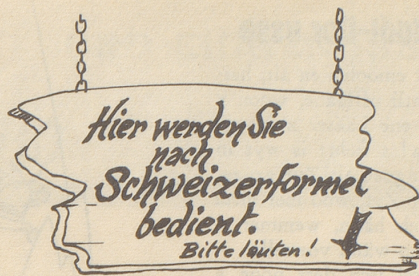 Hier werden Sie
nach
Schweizerformel
bedient.
Bitte läuten!